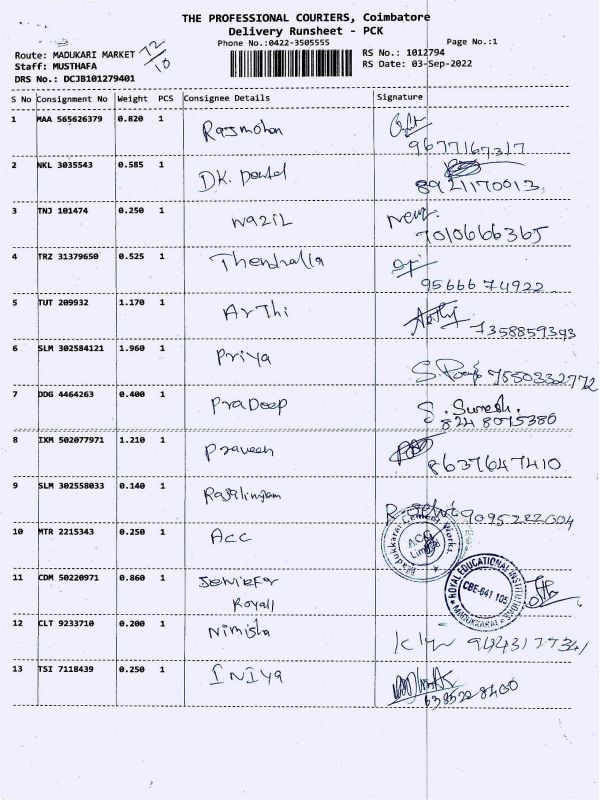 THE PROFESSIONAL COURIERS, Coimbatore
Delivery Runsheet - PCK
Phone No.:0422-3505555
Page No.:1
Route: MADUKARI MARKET
12/10
RS No.: 1012794
Staff: MUSTHAFA
RS Date: 03-Sep-2022
DRS No.: DCJB101279401
S No Consignment No Weight PCS Consignee Details Signature
1 MAA 565626379 0.820 1 Rajmohan
9677167317
2 NKL 3035543 0.585 1 DK. Pantel
8921170013
3 TNJ 101474 0.250 1 Nazil
7010666365
4 TRZ 31379650 0.525 1 Thendralla
95666 74922
5 TUT 209932 1.170 1 ArThi
7358859393
6 SLM 302584121 1.960 1 Priya
7550332772
7 DDG 4464263 0.400 1 PraDeep S. Suresh.
824 8075380
8 IXM 502077971 1.210 1 Praveen
8637647410
9 SLM 302558033 0.140 1 Rajalingam
9095222004
10 MTR 2215343 0.250 1 Acc
Madukkarai Cement Works
ACC Limited
11 CDM 50220971 0.860 1 Jeniefer
Royall
ROYAL EDUCATIONAL INSTITUTIONS
CBE-641 105
MADUKKARAI
12 CLT 9233710 0.200 1 Nimisha
13 TSI 7118439 0.250 1 INIya
6385228400